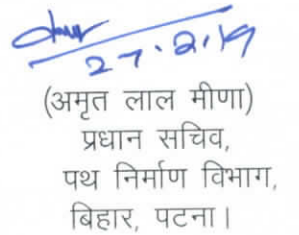 27.2.19
(अमृत लाल मीणा)
प्रधान सचिव,
पथ निर्माण विभाग,
बिहार, पटना।